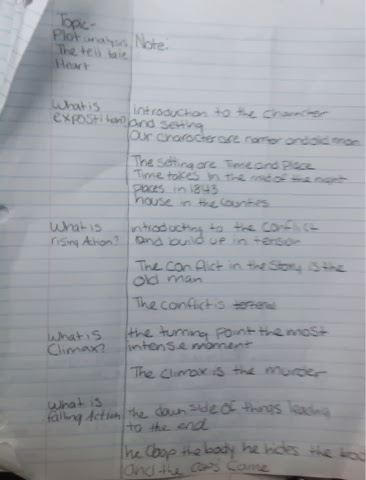 Topic-
Plot analysis
The tell tale
Heart
Note:
What is
expostition?
introduction to the character
and setting
Our character are narrator and old man
The setting are Time and Place
Time takes in the mid of the night
places in 1843
house in the counties
What is
rising Action?
introducting to the conflict
and build up in tension
The conflict in the story is the
old man
The conflict is
What is
Climax?
the turning point the most
intense moment
The climax is the murder
What is
falling Action
the down side of things leading
to the end
he chop the body he hides the
and the cops came